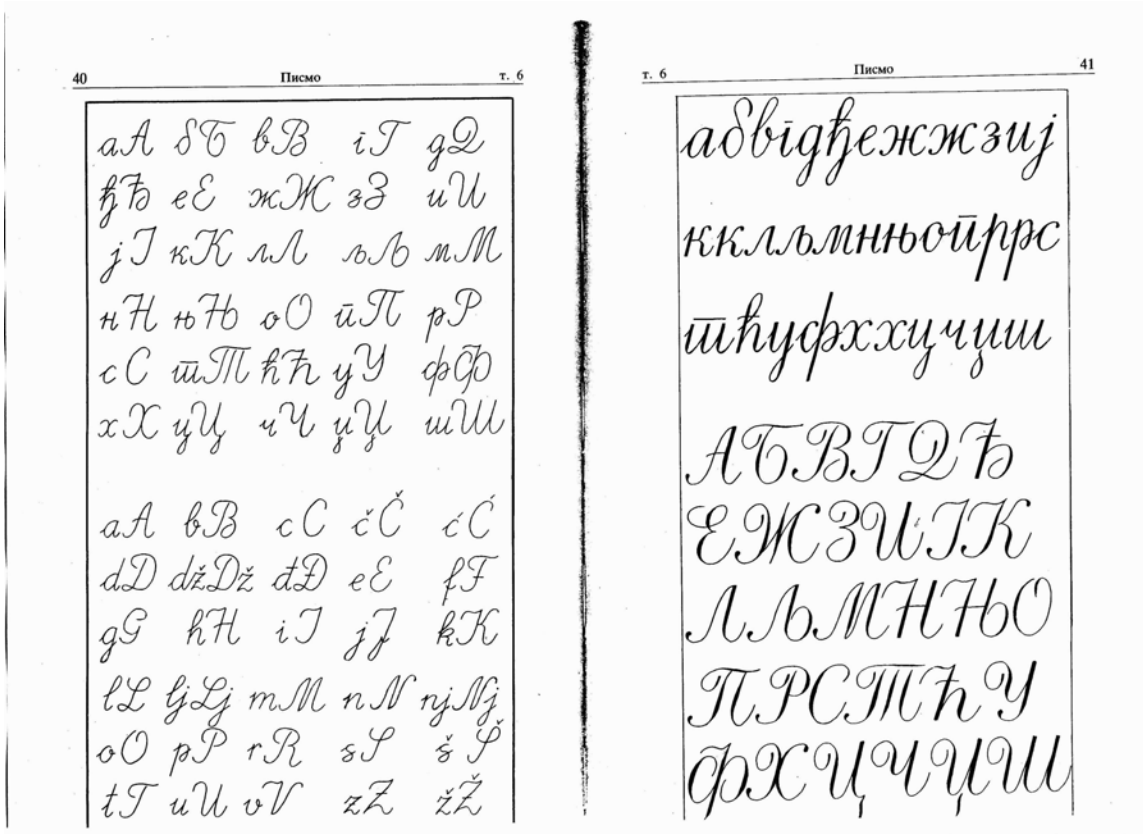 40 Писмо т. 6
аА бБ вВ гГ дД
ђЂ еЕ жЖ зЗ иИ
јЈ кК лЛ љЉ мМ
нН њЊ оО пП рР
сС тТ ћЋ уУ фФ
хХ цЦ чЧ џЏ шШ
aA bB cC čČ ćĆ
dD džDž đĐ eE fF
gG hH iI jJ kK
lL ljLj mM nN njNj
oO pP rR sS šŠ
tT uU vV zZ žŽ
т. 6 Писмо 41
абвгдђежжзиј
ккллљмннњопррс
тћуфххцчџш
АБВГДЂ
ЕЖЗИЈК
ЛЉМНЊО
ПРСТЋУ
ФХЦЧЏШ